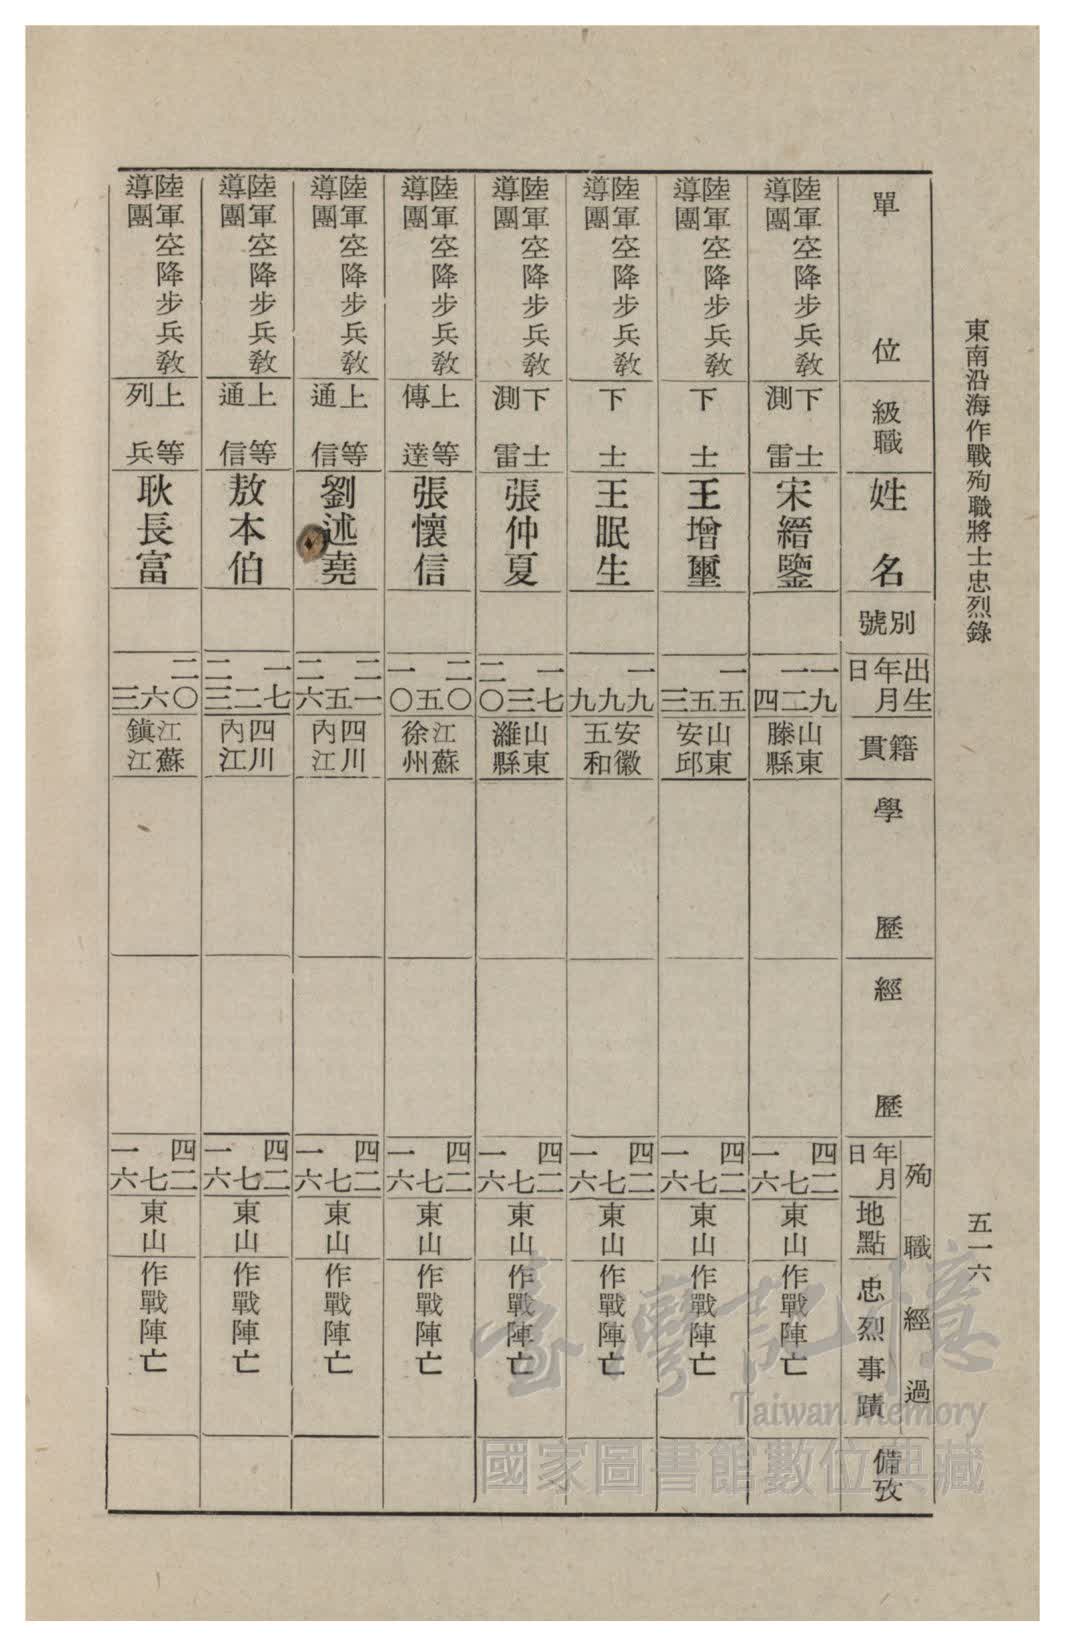 東南沿海作戰殉職將士忠烈錄
五一六
單位
級職
姓名
別號
出生
年月
日
籍貫
學歷
經歷
殉職經過
年月
日
地點
忠烈事蹟
備攷
陸軍空降步兵教
導團
下士
測雷
宋縉鑒
一九
一二
四
山東
滕縣
四二
七
一六
東山
作戰陣亡
陸軍空降步兵教
導團
下士
王增璽
一五
五
三
山東
安邱
四二
七
一六
東山
作戰陣亡
陸軍空降步兵教
導團
下士
王眠生
一九
九
九
安徽
五和
四二
七
一六
東山
作戰陣亡
陸軍空降步兵教
導團
下士
測雷
張仲夏
一七
三
二〇
山東
濰縣
四二
七
一六
東山
作戰陣亡
陸軍空降步兵教
導團
上等
傳達
張懷信
二〇
五
一〇
江蘇
徐州
四二
七
一六
東山
作戰陣亡
陸軍空降步兵教
導團
上等
通信
劉述堯
二一
五
二六
四川
內江
四二
七
一六
東山
作戰陣亡
陸軍空降步兵教
導團
上等
通信
敖本伯
一七
二
二三
四川
內江
四二
七
一六
東山
作戰陣亡
陸軍空降步兵教
導團
上等
列兵
耿長富
二〇
六
三
江蘇
鎮江
四二
七
一六
東山
作戰陣亡
臺灣記憶
Taiwan Memory
國家圖書館數位典藏